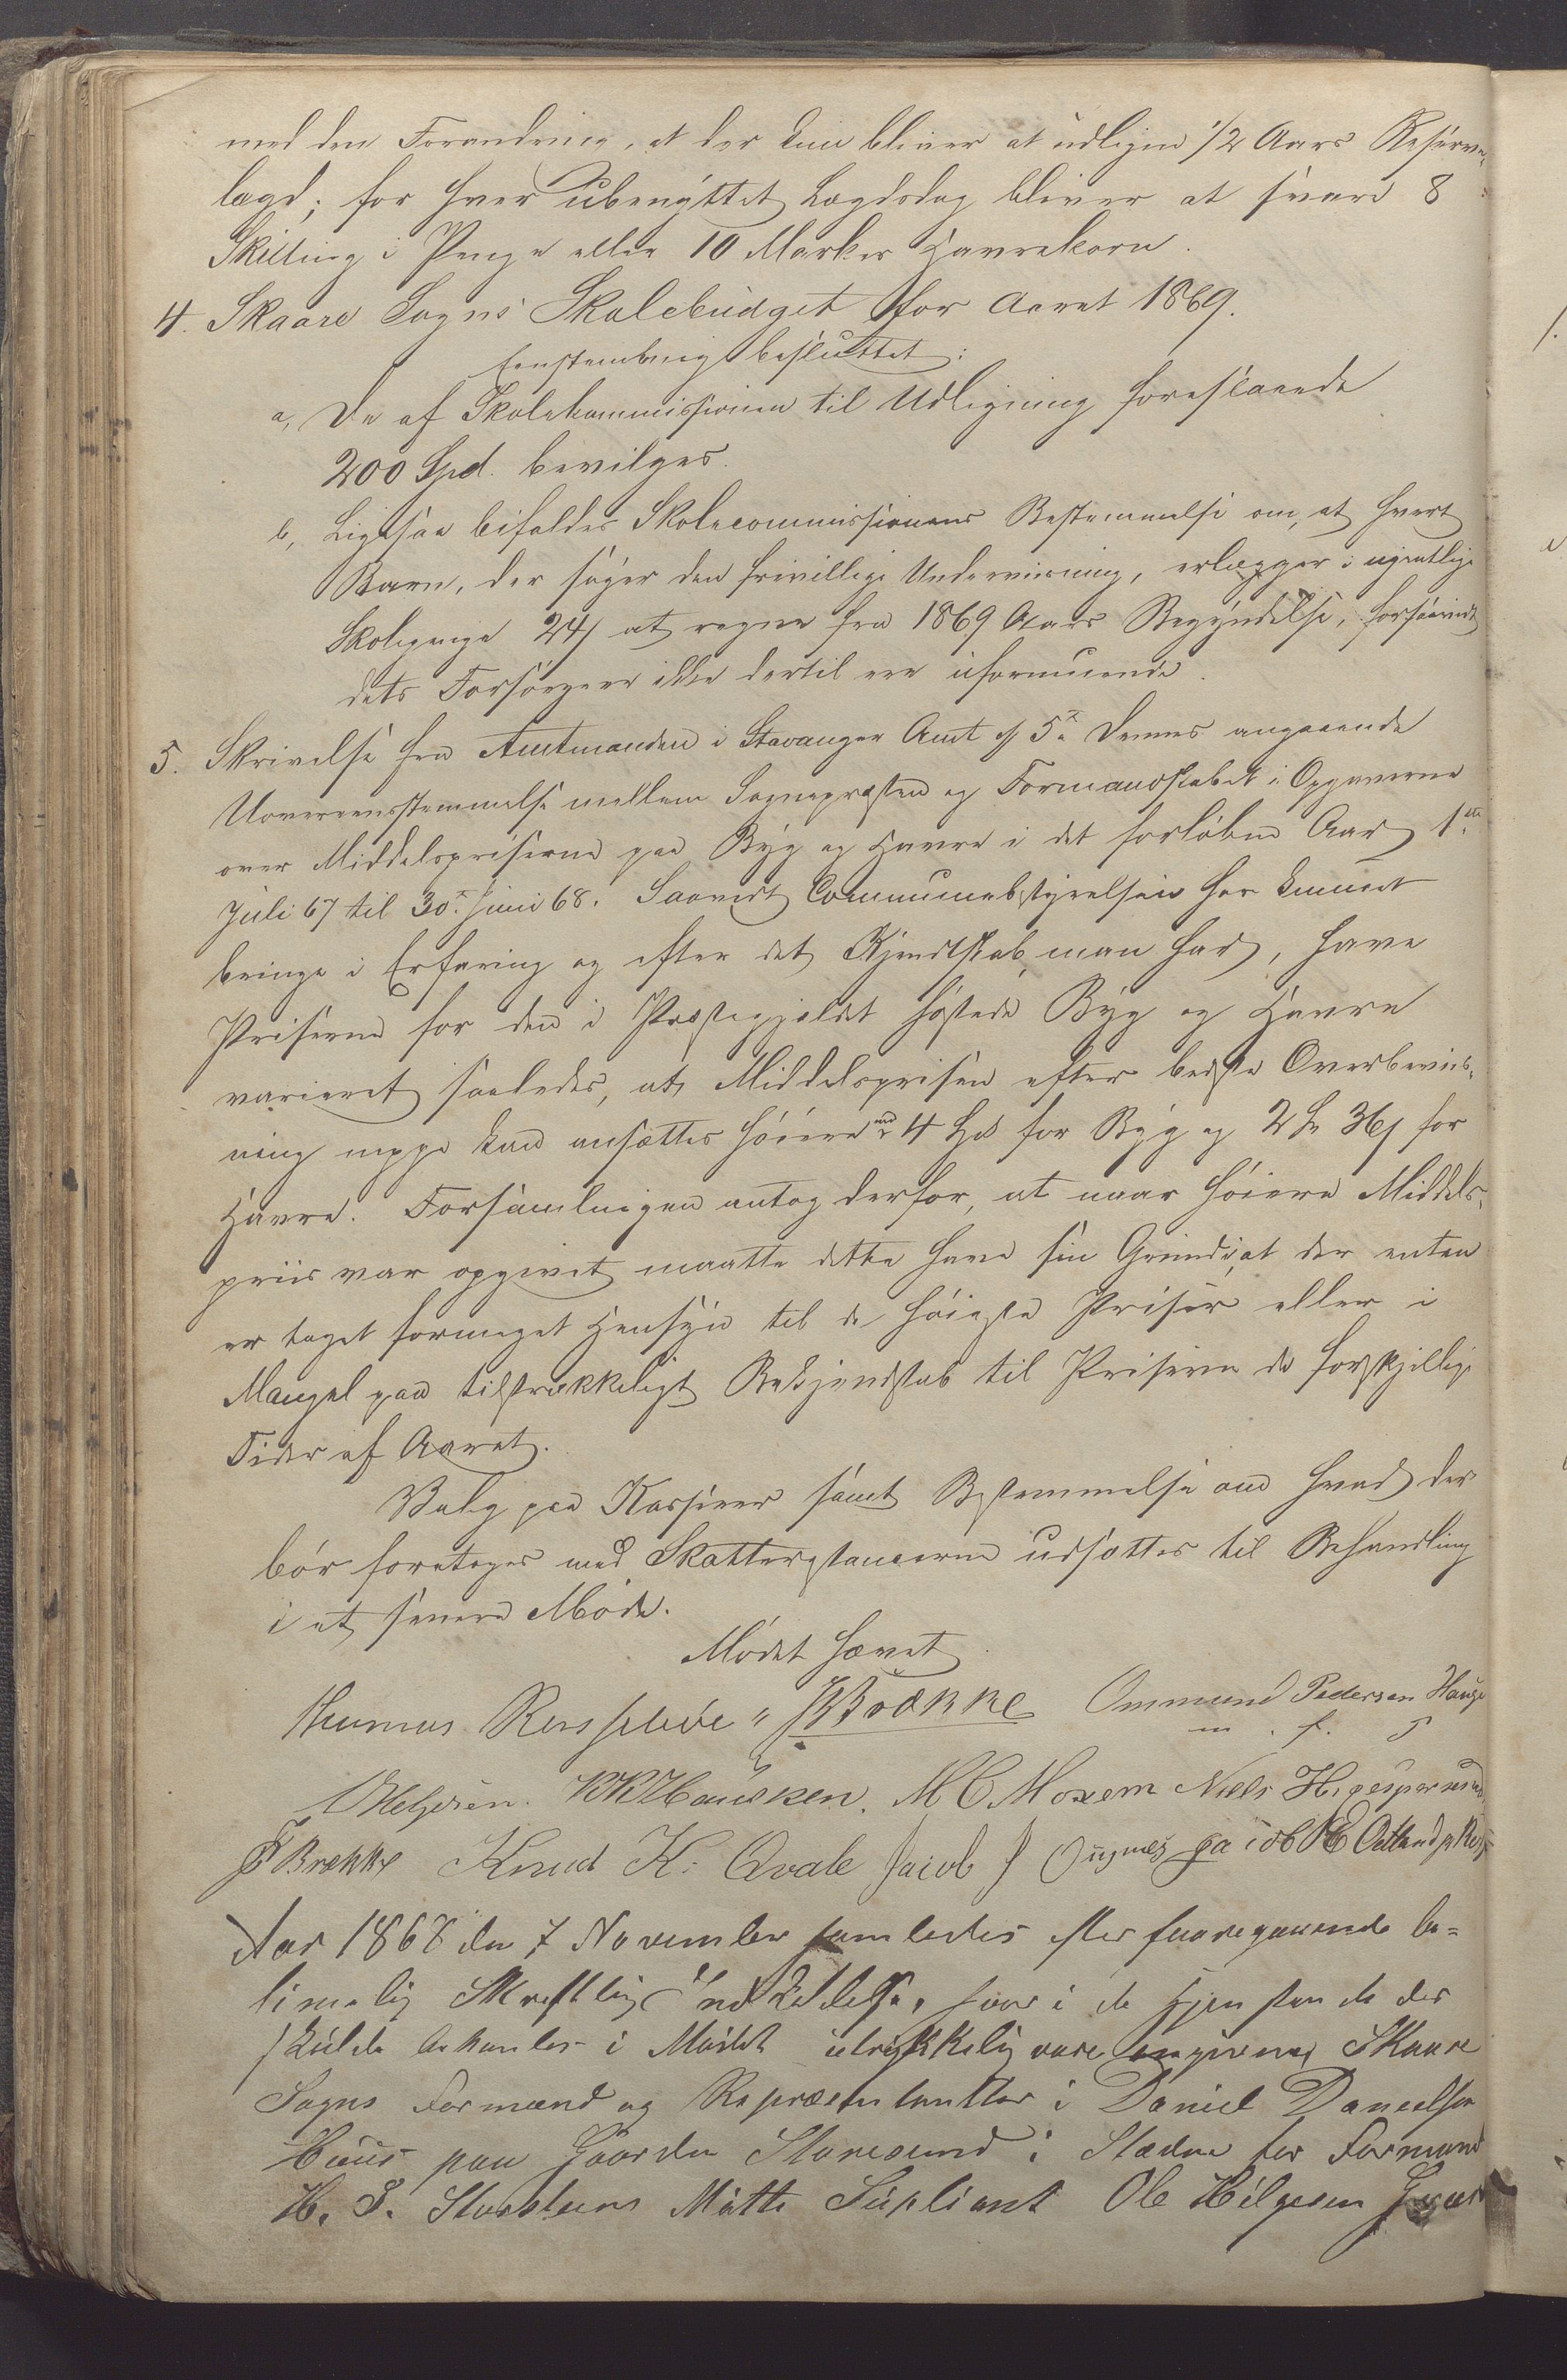 med den Forandring, at der kun bliver at udligne 1/2 Aars Reserve-
lægd; for hver ubenyttet Lægdsdag bliver at svare 8
Skilling i Penge eller 10 Marker Havrekorn.
4. Skaare Sogns Skolebudget for Aaret 1869.
Eenstemmig besluttet:
a, De af Skolekommissionen til Udligning foreslaaede
200 Spd. bevilges.
b, Ligesaa bifaldes Skolecommissionens Bestemmelse om, at hvert
Barn, der søger den frivillige Undervisning, erlægger i ugentlige
Skolepenge 24 s at regne fra 1869 Aars Begyndelse, forsaavidt
dets Forsørgere ikke dertil ere uformuende.
5. Skrivelse fra Amtmanden i Stavanger Amt af 5te Dennes angaaende
Uoverensstemmelse mellem Sognepræsten og Formandskabet i Opgaverne
over Middelspriserne paa Byg og Havre i det forløbne Aar 1ste
Juli 67 til 30te Juni 68. Saavidt Communebestyrelsen har kunnet
bringe i Erfaring og efter det Kjendskab man har, have
Priserne for den i Præstegjeldet høstede Byg og Havre
varieret saaledes, at Middelsprisen efter bedste Overbeviis-
ning neppe kan ansættes høiere end 4 Spd for Byg og 2 Spd 36 s for
Havre. Forsamlingen antog derfor, at naar høiere Middels-
priis var opgivet maatte dette have sin Grund i, at der enten
er taget formeget Hensyn til de høieste Priser eller i
Mangel paa tilstrækkeligt Bekjendskab til Priserne de forskjellige
Tider af Aaret.
Valg paa Kasserer samt Bestemmelse om hvad der
bør foretages med Skatterestancerne udsættes til Behandling
i et senere Møde.
Mødet hævet
Brække Ommund Pedersen Hauge
m. f. P
Helgesen. KK Hausken. M C Moxem Niels H.
Brække Knud K: Qvale Jacob J
Aar 1868 den 7 November samledes efter foregaaende be-
timelig Skreftlig Indkaldelse, hvor i de Gjenstande der
skulde behanles i Mødet udtrykkelig vare angivne, Skaare
Sogns Formænd og Repræsentantter i Daniel Danielsen
Huus paa Gaarden Storesund i Stædne for Formand
H. S. Storsteens Møtte Supliant Ole Helgesen